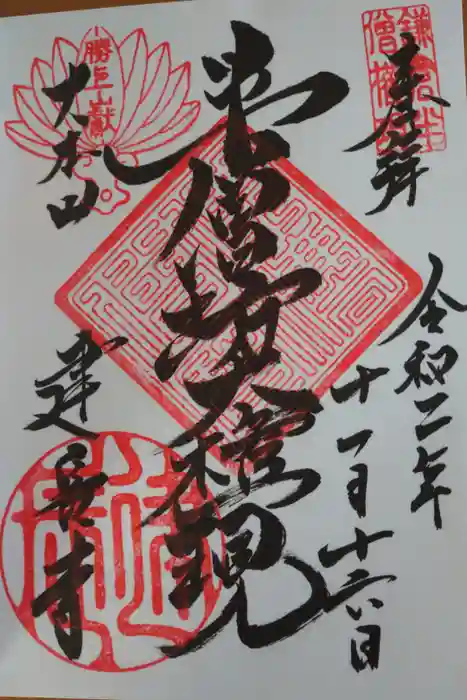 奉拝
令和二年
十一月十六日
半僧坊大権現
勝上嶽
大本山
建長寺